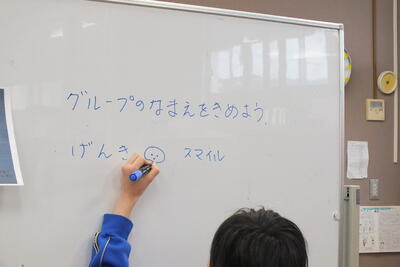 グループのなまえをきめよう。
げんき スマイル